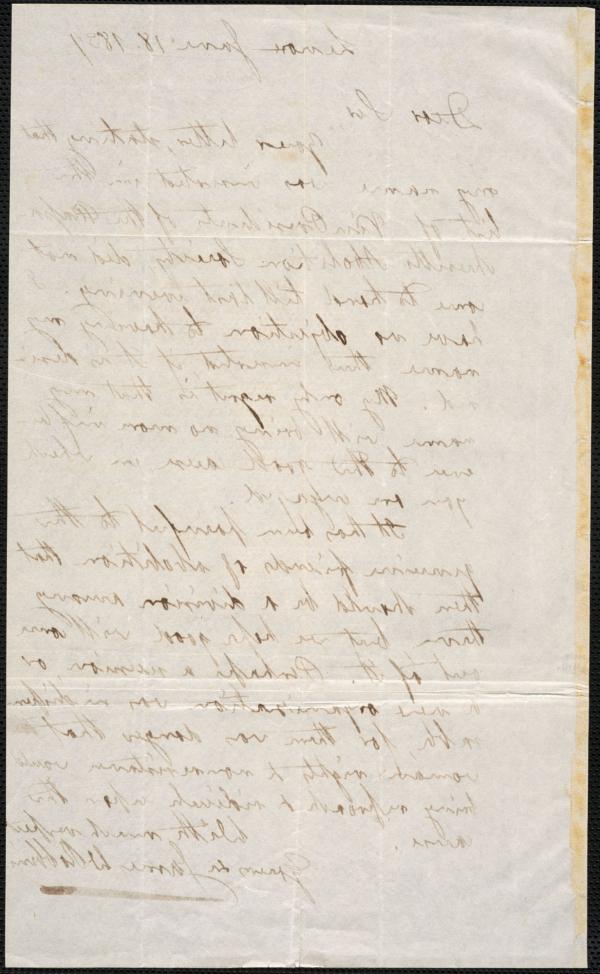 Lenox June 18. 1839
Dear Sir
Your letter, stating that
my name was inserted in the
list of Vice Presidents of the Massa-
chusetts Abolition Society did not
come to hand till last evening. I
have no objection to having my
name thus inserted if it is desir-
ed. My only regret is that my
name will bring no more influ-
ence to the good cause in which
you are engaged.
It has been painful to the
genuine friends of abolition that
there should be a division among
them, but we hope good will come
out of it. Perhaps a reunion or
a new organization was indispen
sable, for there was danger that
woman's rights & nonresistance would
bring reproach & ridicule upon the
cause.
With much respect
Yours &c